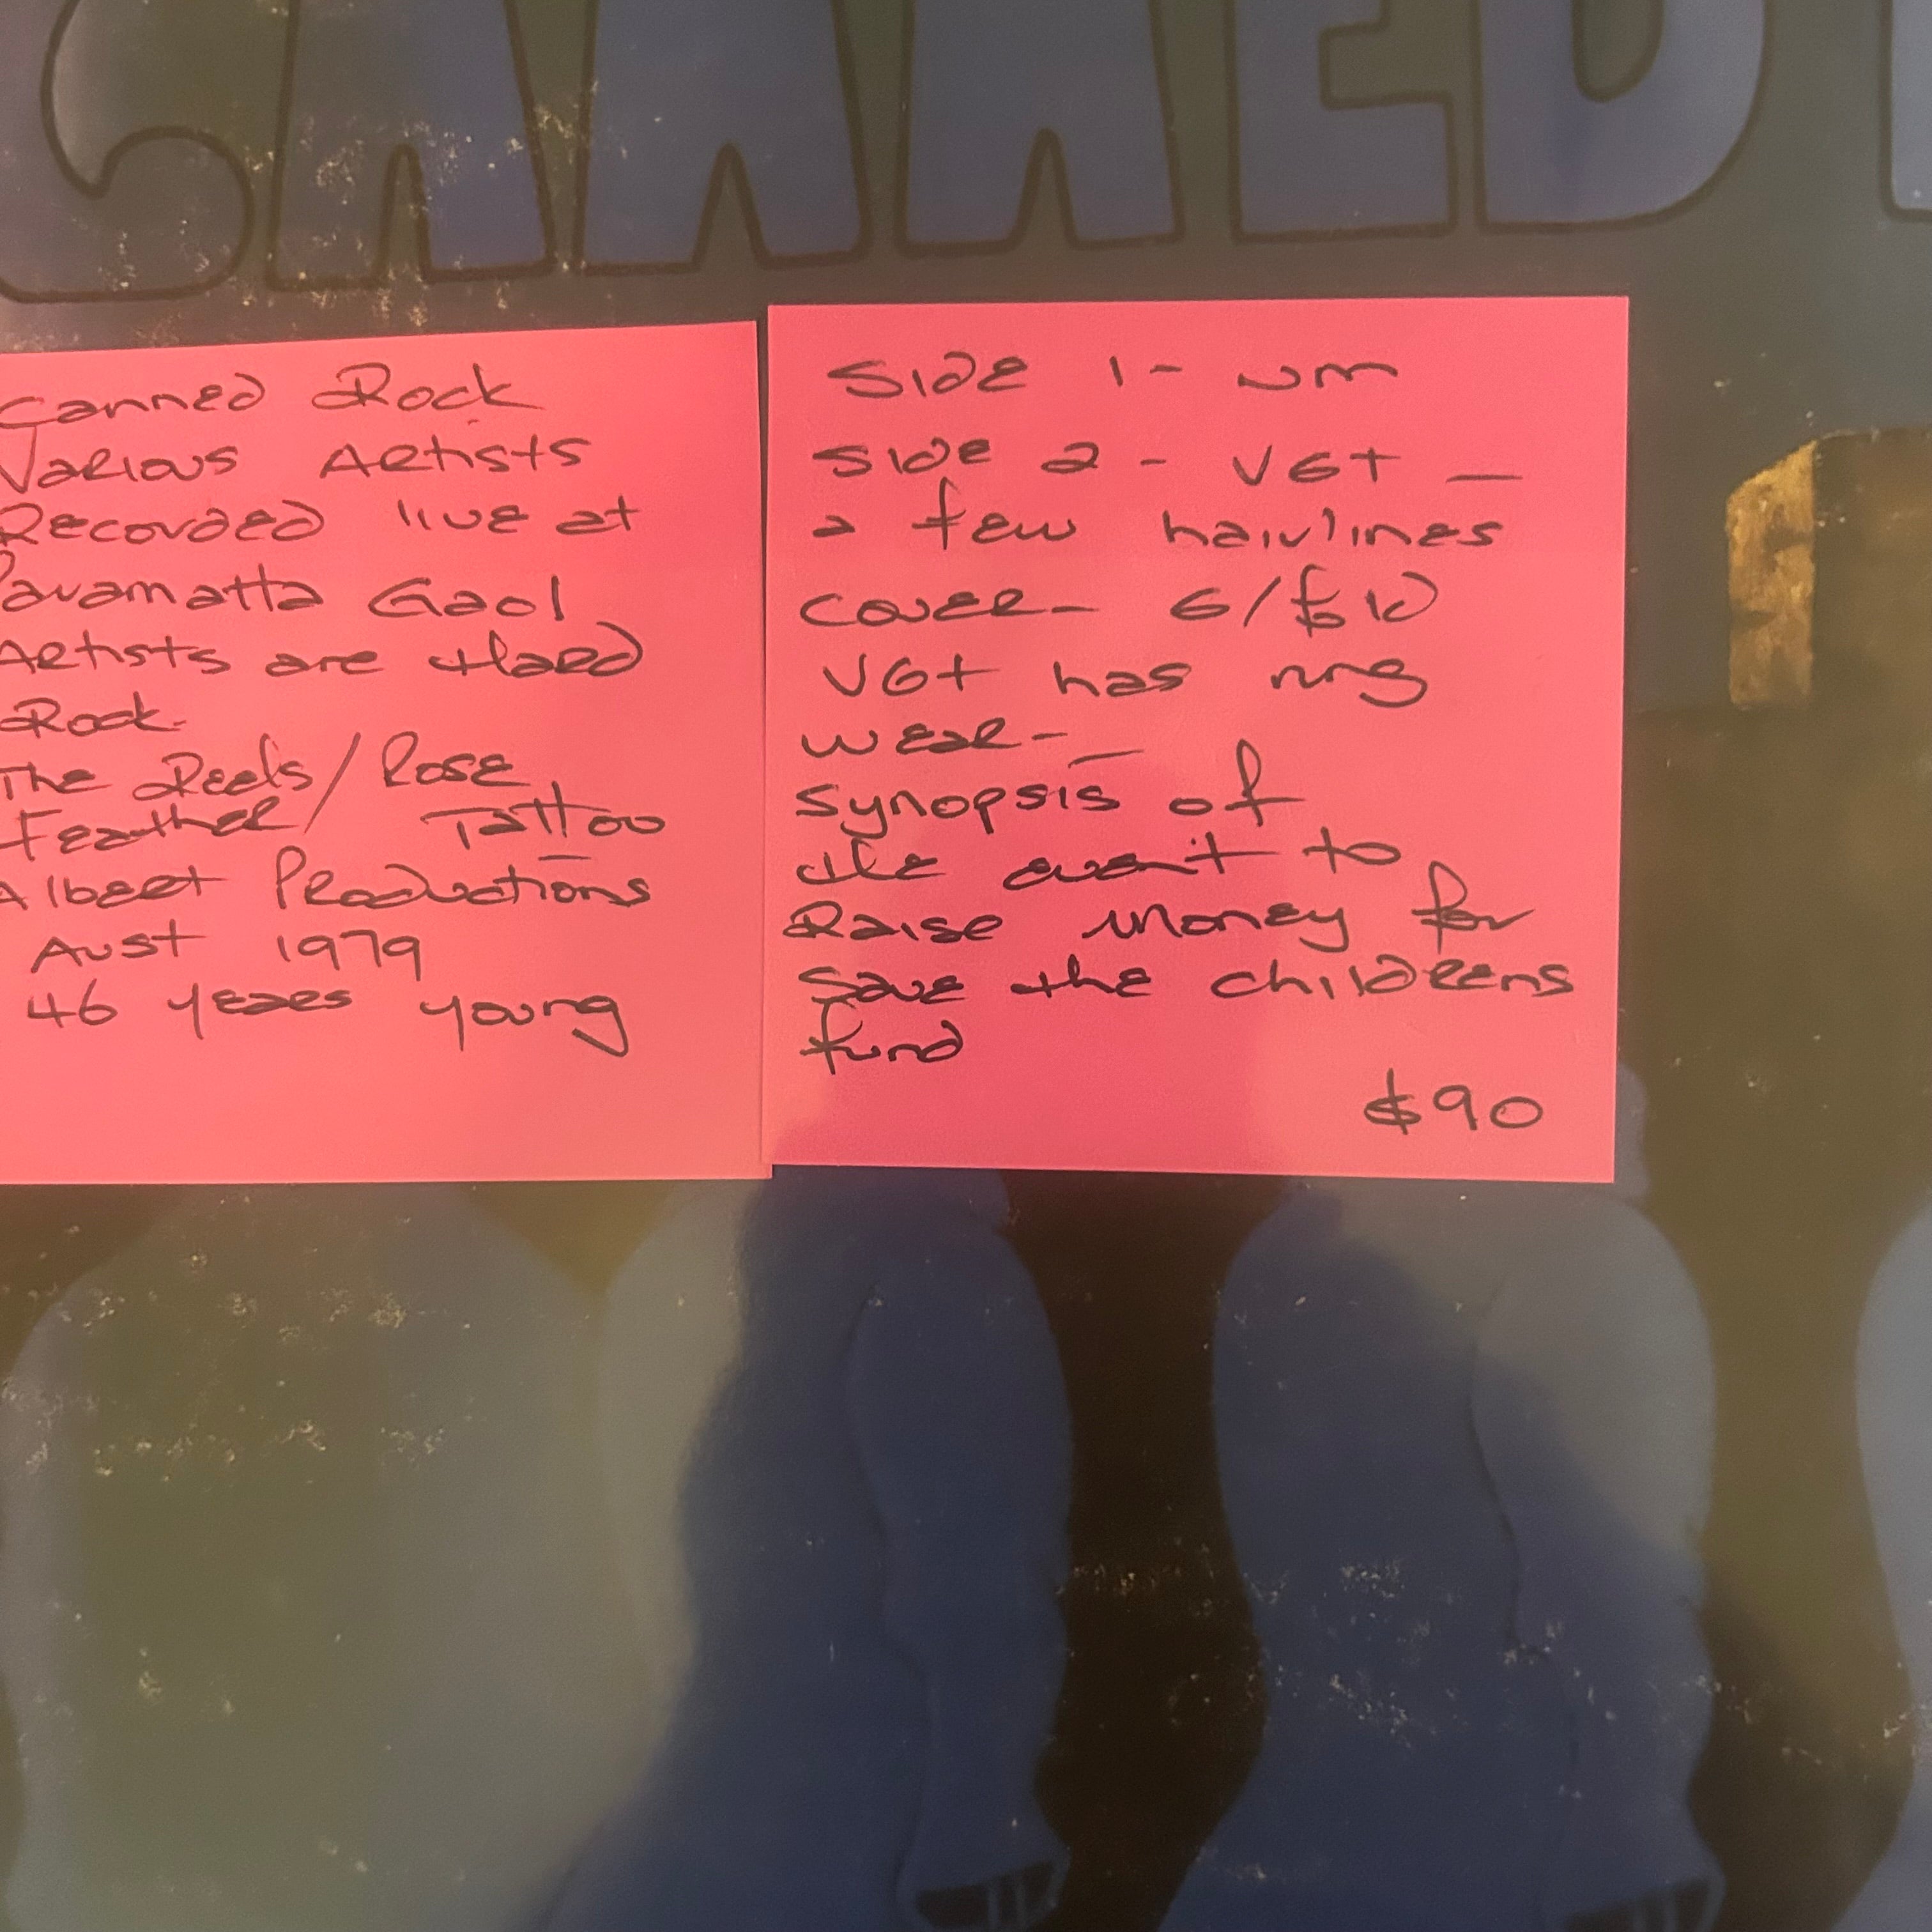 CANNED
Canned Rock
Various Artists
Recorded live at
Paramatta Gaol
Artists are Hard
Rock.
The Reels/Rose
Feather/ Tattoo
Albert Productions
Aust 1979
46 years young
Side 1 - NM
Side 2 - VG+ —
a few hairlines
Cover - G/
VG+ has ring
wear -
Synopsis of
the event to
Raise money for
Save the childrens
fund
$90